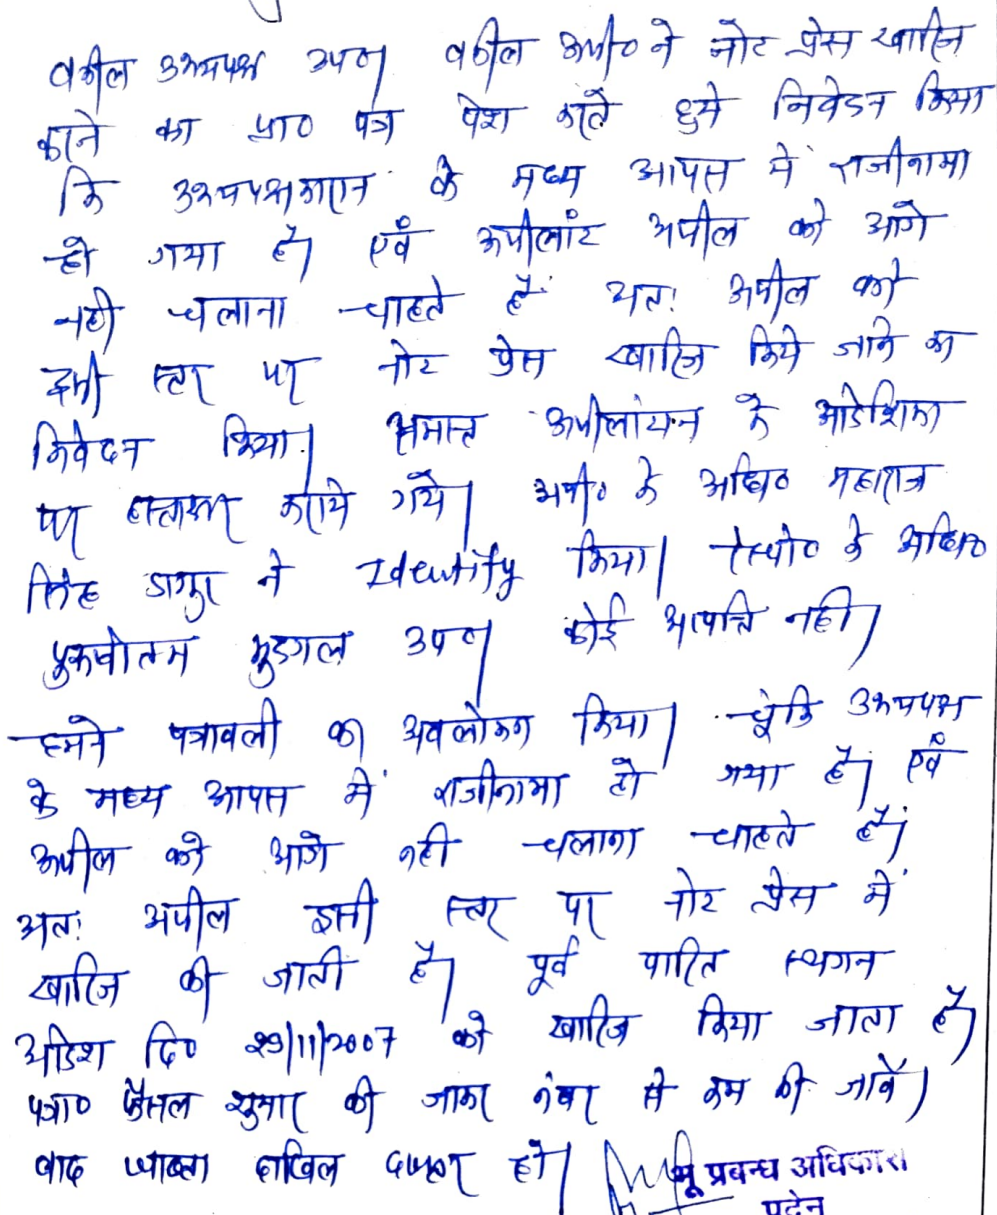 वकील उभयपक्ष उप० वकील अपी० ने नोट प्रेस खारिज
करने का प्रा० पत्र पेश करते हुये निवेदन किया
कि उभयपक्षकारान के मध्य आपस में राजीनामा
हो गया है। एवं अपीलांट अपील को आगे
नही चलाना चाहते हैं अतः अपील को
इसी स्तर पर नोट प्रेस खारिज किये जाने का
निवेदन किया। समस्त अपीलांटान के आदेशिका
पर हस्ताक्षर कराये गये। अपी० के अधि० महाराज
सिंह डागुर ने Identify किया। रेस्पो० के अधि०
पुरूषोतम मुडगल उप० कोई आपत्ति नही।
हमने पत्रावली का अवलोकन किया। चूंकि उभयपक्ष
के मध्य आपस में राजीनामा हो गया है। एवं
अपील को आगे नही चलाना चाहते हैं।
अतः अपील इसी स्तर पर नोट प्रेस में
खारिज की जाती है। पूर्व पारित स्थगन
आदेश दि० 29/11/2007 को खारिज किया जाता है।
पत्रा० फैसल शुमार की जाकर नंबर से कम की जावें।
बाद जाब्ता दाखिल दफ्तर हो।
भू प्रबन्ध अधिकारी
पदेन